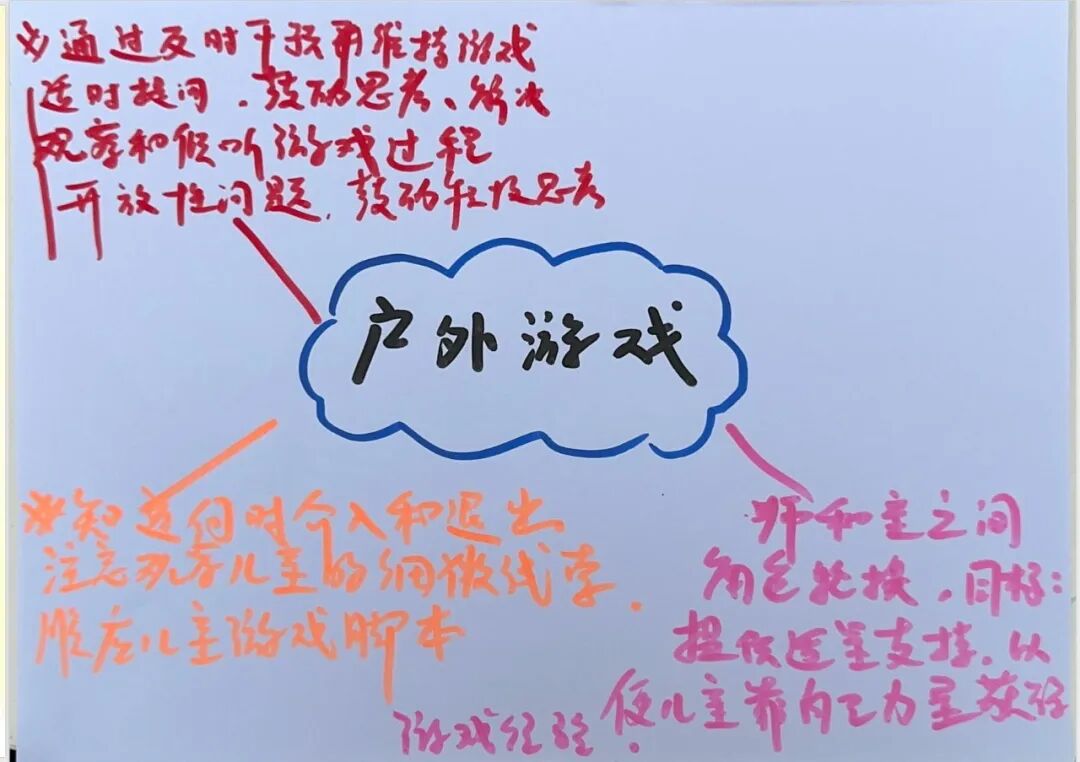 ※通过及时干预再维持游戏
适时提问、鼓励思考、解决
观察和倾听游戏过程
开放性问题、鼓励积极思考
户外游戏
※知道何时介入和退出
注意观察儿童的细微线索.
顺应儿童游戏脚本
师和童之间
角色轮换.目标：
提供适量支持.以
便儿童靠自己力量获得
游戏经验.